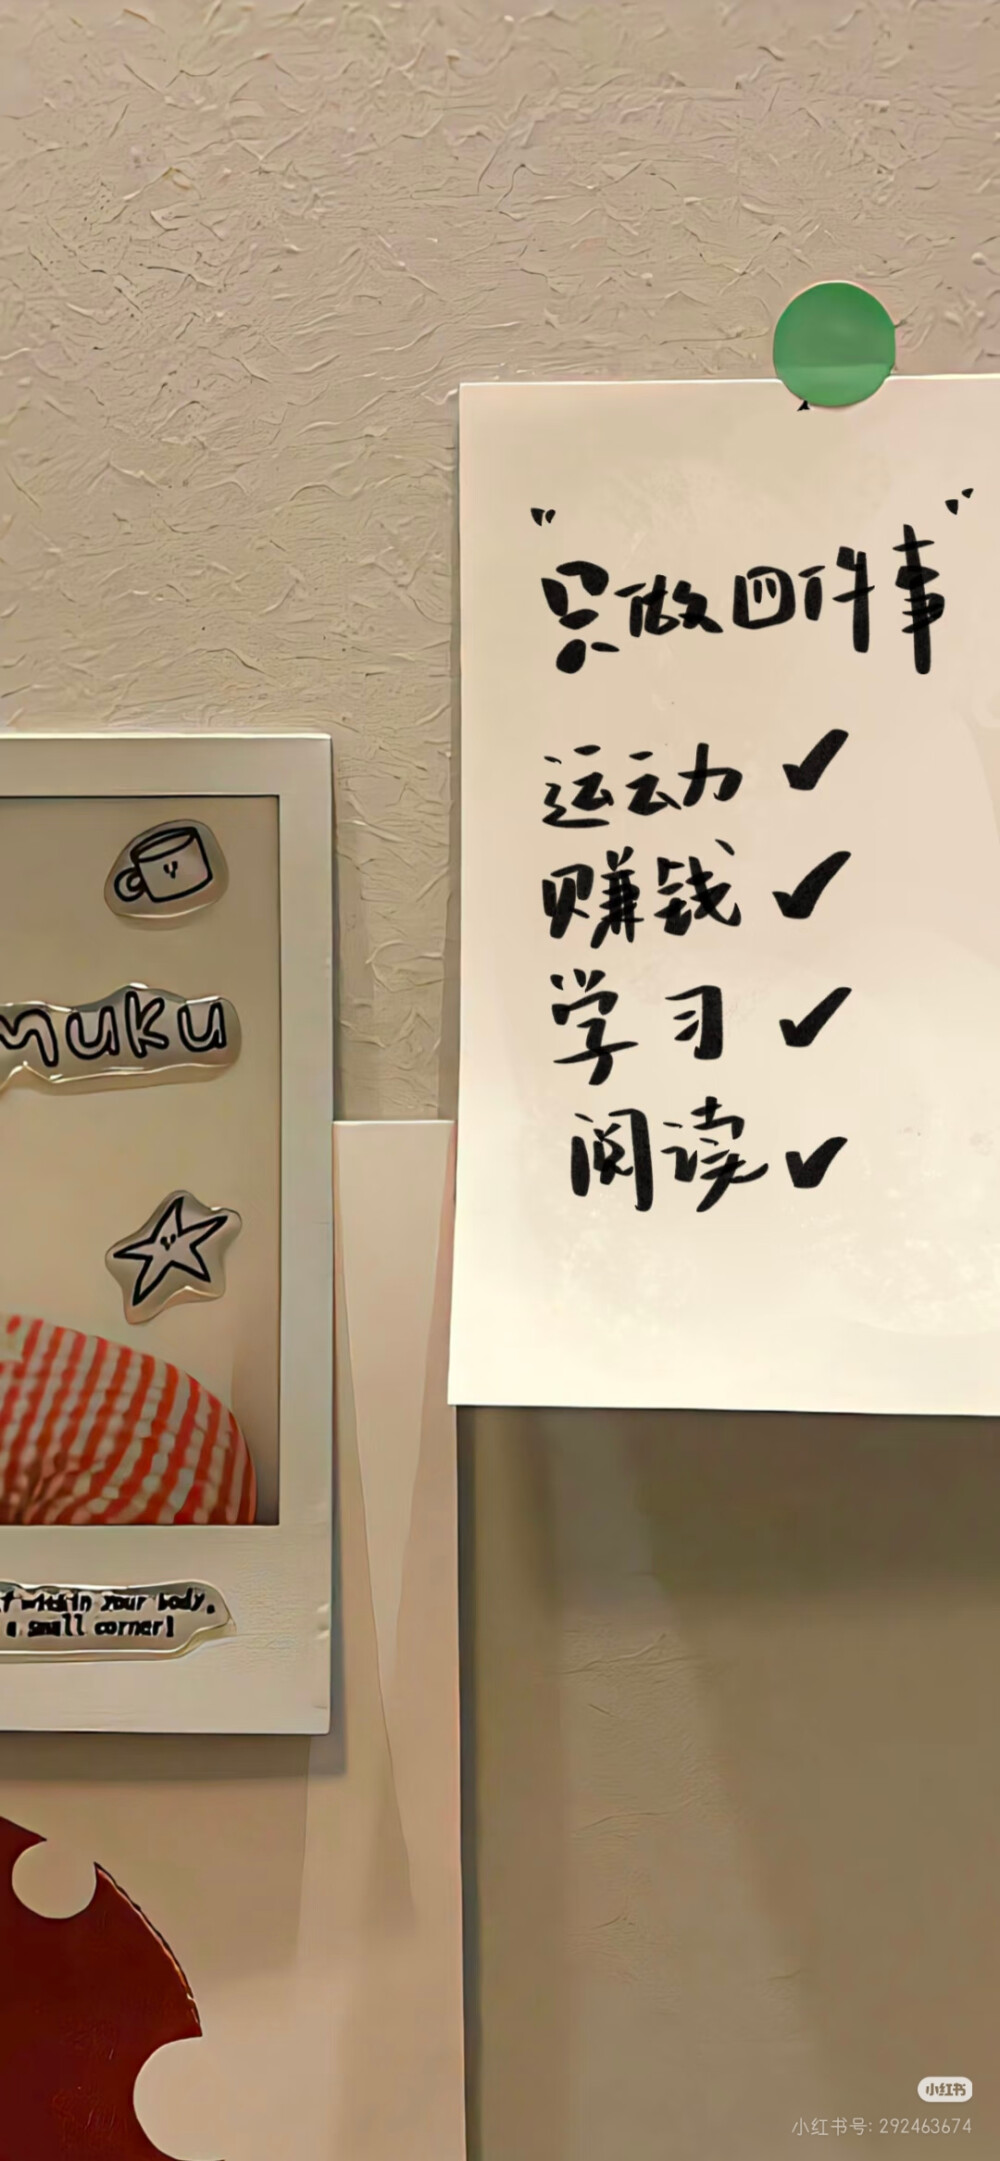 "只做四件事"
运动 ✓
赚钱 ✓
学习 ✓
阅读 ✓
muku
within your body,
a small corner!
小红书
小红书号: 292463674